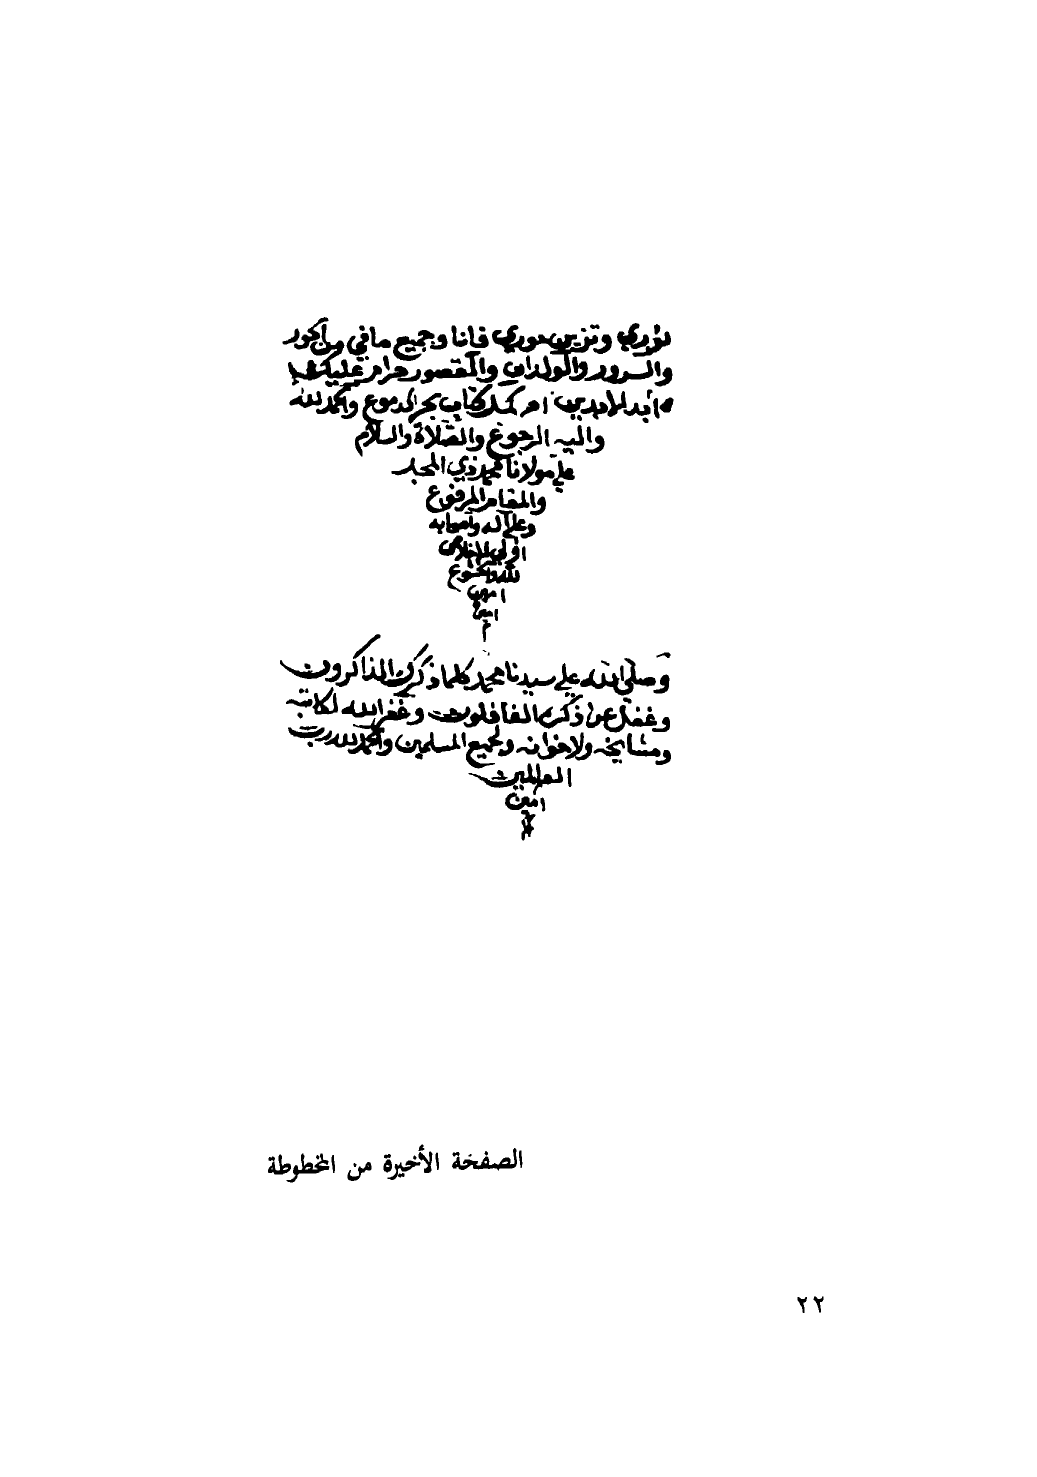 نوري وتزين حوري فانا وجميع ما في من الحور
والسرور والولدان والقصور حرام عليك
ابد الابدين اه كمل كتاب بحر الدموع والحمد لله
واليه الرجوع والصلاة والسلام
علي مولانا محمد ذي المجد
والمقام المرفوع
وعلي اله واصحابه
اولي الاخلاص
لله والخشوع
امين
امين
م
وصلي الله علي سيدنا محمد كلما ذكرك الذاكرون
وغفل عن ذكرك الغافلون وغفر الله لكاتبه
ومشايخه ولاخوانه ولجميع المسلمين والحمد لله رب
العالمين
امين
الصفحة الأخيرة من المخطوطة
٢٢